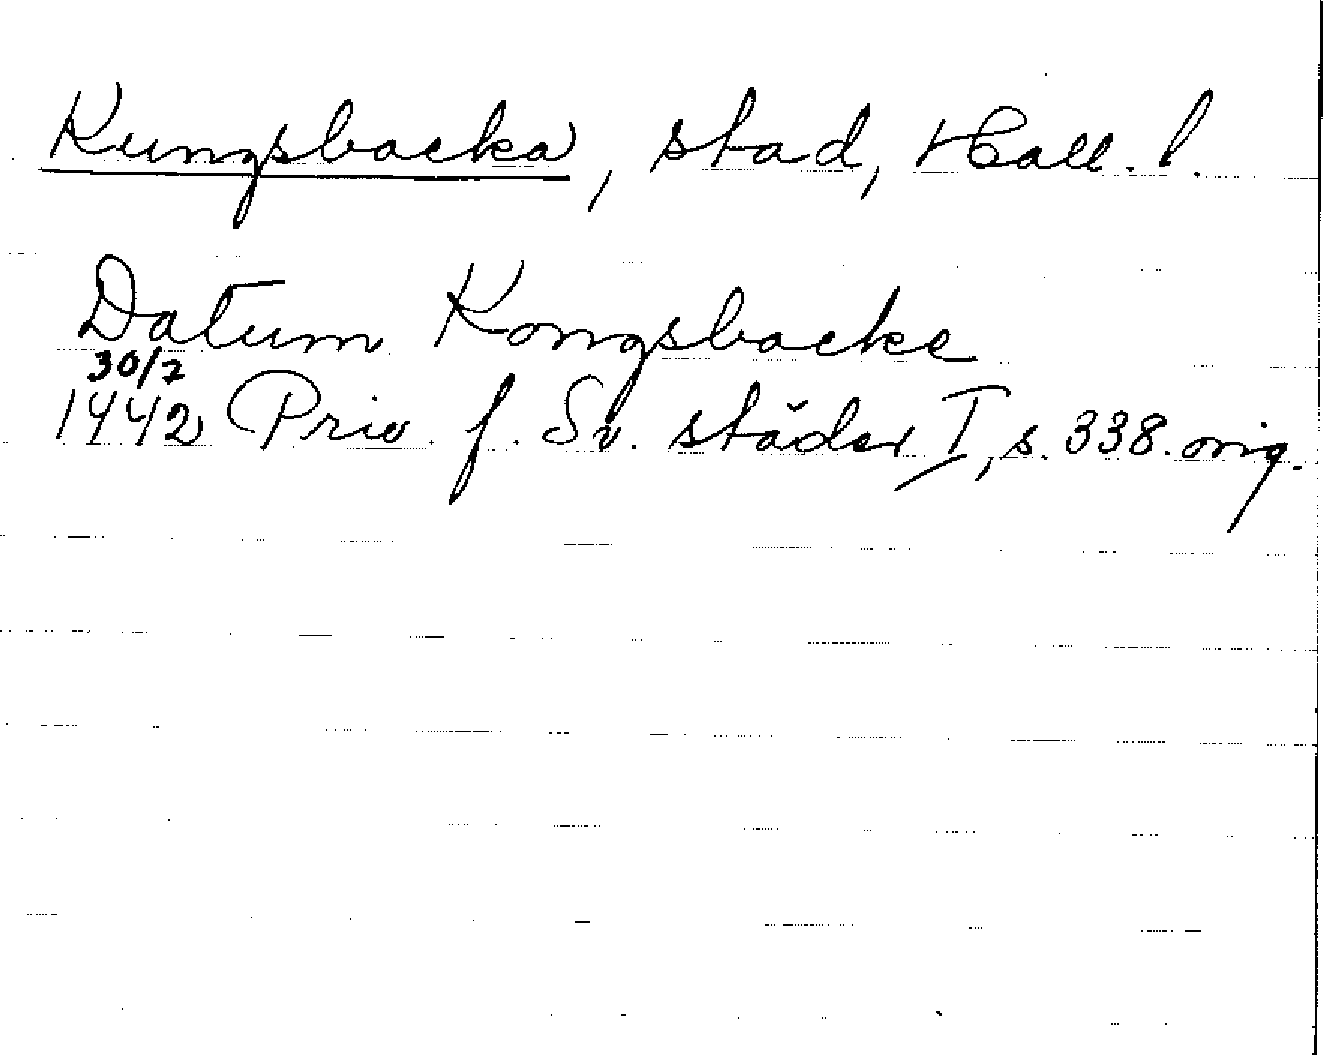 Kungsbacka, stad, Hall. l.
Datum Kongsbacke
30/7
1442 Priv. f. Sv. städer I, s. 338. orig.